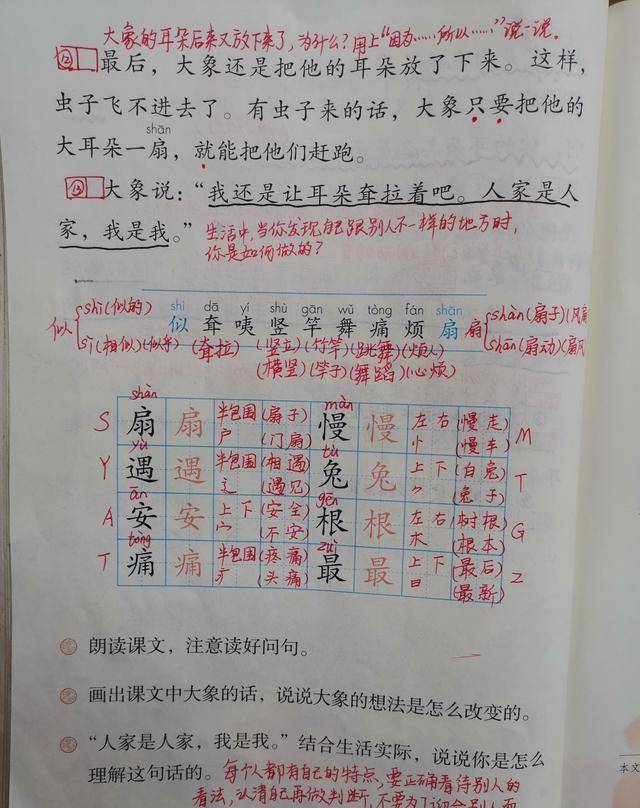 大象的耳朵后来又放下来了，为什么？用上“因为……所以……”说一说。
⑫最后，大象还是把他的耳朵放了下来。这样，
虫子飞不进去了。有虫子来的话，大象只要把他的
shān
大耳朵一扇，就能把他们赶跑。
⑬大象说：“我还是让耳朵耷拉着吧。人家是人
家，我是我。”
生活中，当你发现自己跟别人不一样的地方时，
你是如何做的？
shì dā yí shù gān wǔ tòng fán shān
似 耷 咦 竖 竿 舞 痛 烦 扇
似 shì(似的)
sì(相似)(似乎)
(耷拉) (竖立)(竹竿)(跳舞)(烦人)
(横竖)(竿子)(舞蹈)(心烦)
扇 shàn(扇子)(风扇
shān(扇动)(扇风
shàn màn
S 扇 扇 半包围 户 (扇子) (门扇) 慢 慢 左右 忄 (慢走) (慢车) M
yù tù
Y 遇 遇 半包围 辶 (相遇) (遇见) 兔 兔 上下 (白兔) (兔子) T
ān gēn
A 安 安 上下 宀 (安全) (不安) 根 根 左右 木 (树根) (根本) G
tòng zuì
T 痛 痛 半包围 疒 (疼痛) (头痛) 最 最 上下 曰 (最后) (最新) Z
朗读课文，注意读好问句。
画出课文中大象的话，说说大象的想法是怎么改变的。
“人家是人家，我是我。”结合生活实际，说说你是怎么
理解这句话的。
每个人都有自己的特点，要正确看待别人的
看法，认清自己再做判断，不要为了迎合别人而
本文